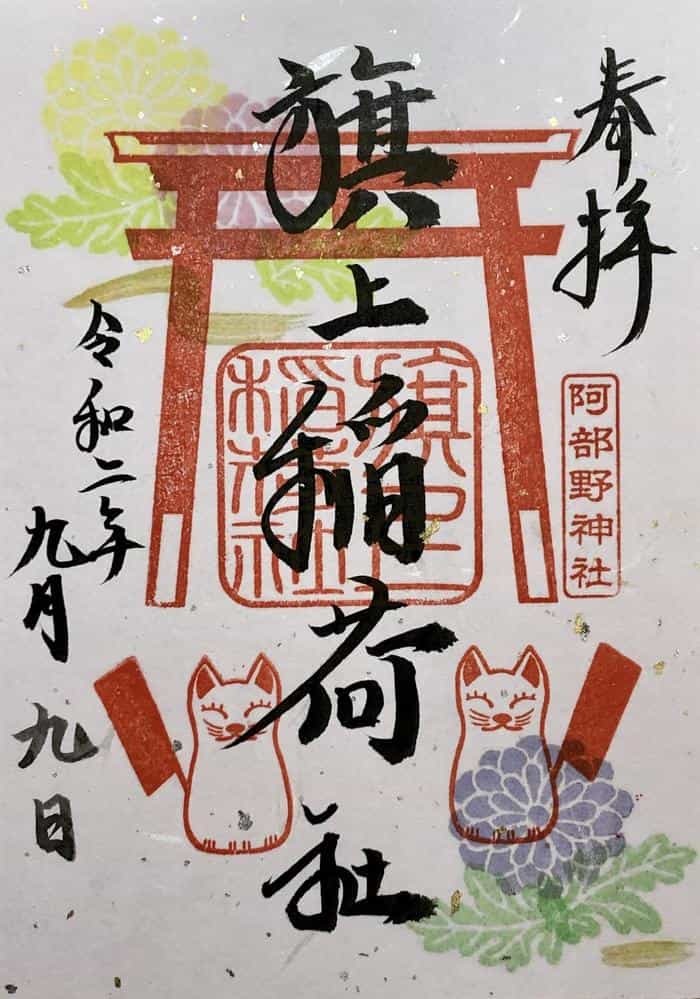 奉拝
阿部野神社
旗上稲荷社
旗上
稲荷社
令和二年
九月九日